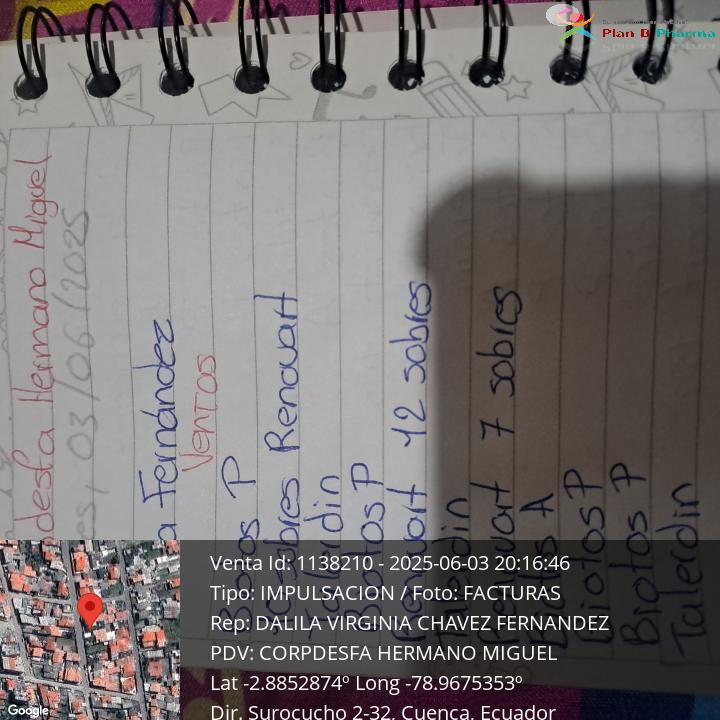 Plan B Pharma
desfa Hermano Miguel
es, 03/06/2025
a Fernández
Ventas
P
sobres Renovart
Talerdin
Biotos P
Renovart 12 sobres
Talerdin
Renovart 7 sobres
A
Biotos P
Biotos P
Talerdin
Venta Id: 1138210 - 2025-06-03 20:16:46
Tipo: IMPULSACION / Foto: FACTURAS
Rep: DALILA VIRGINIA CHAVEZ FERNANDEZ
PDV: CORPDESFA HERMANO MIGUEL
Lat -2.8852874º Long -78.9675353º
Dir. Surocucho 2-32, Cuenca, Ecuador
Google